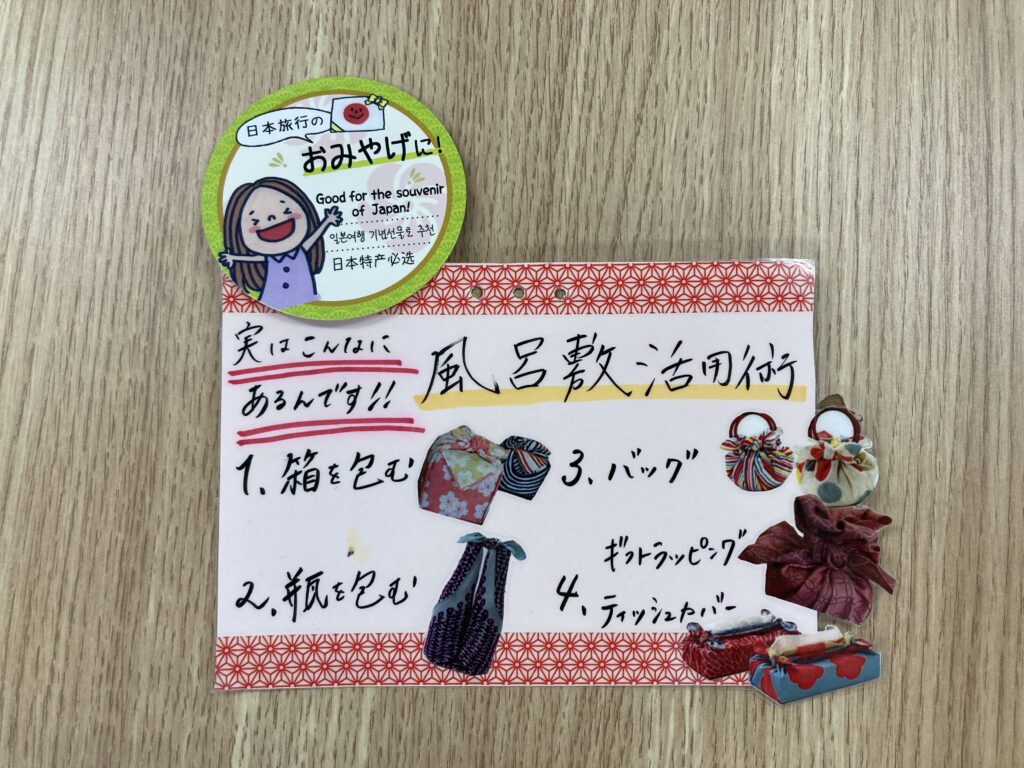 日本旅行の
おみやげに!
Good for the souvenir
of Japan!
일본여행 기념선물로 추천
日本特产必选
実はこんなに
あるんです!!
風呂敷活用術
1. 箱を包む
2. 瓶を包む
3. バッグ
ギフトラッピング
4. ティッシュカバー